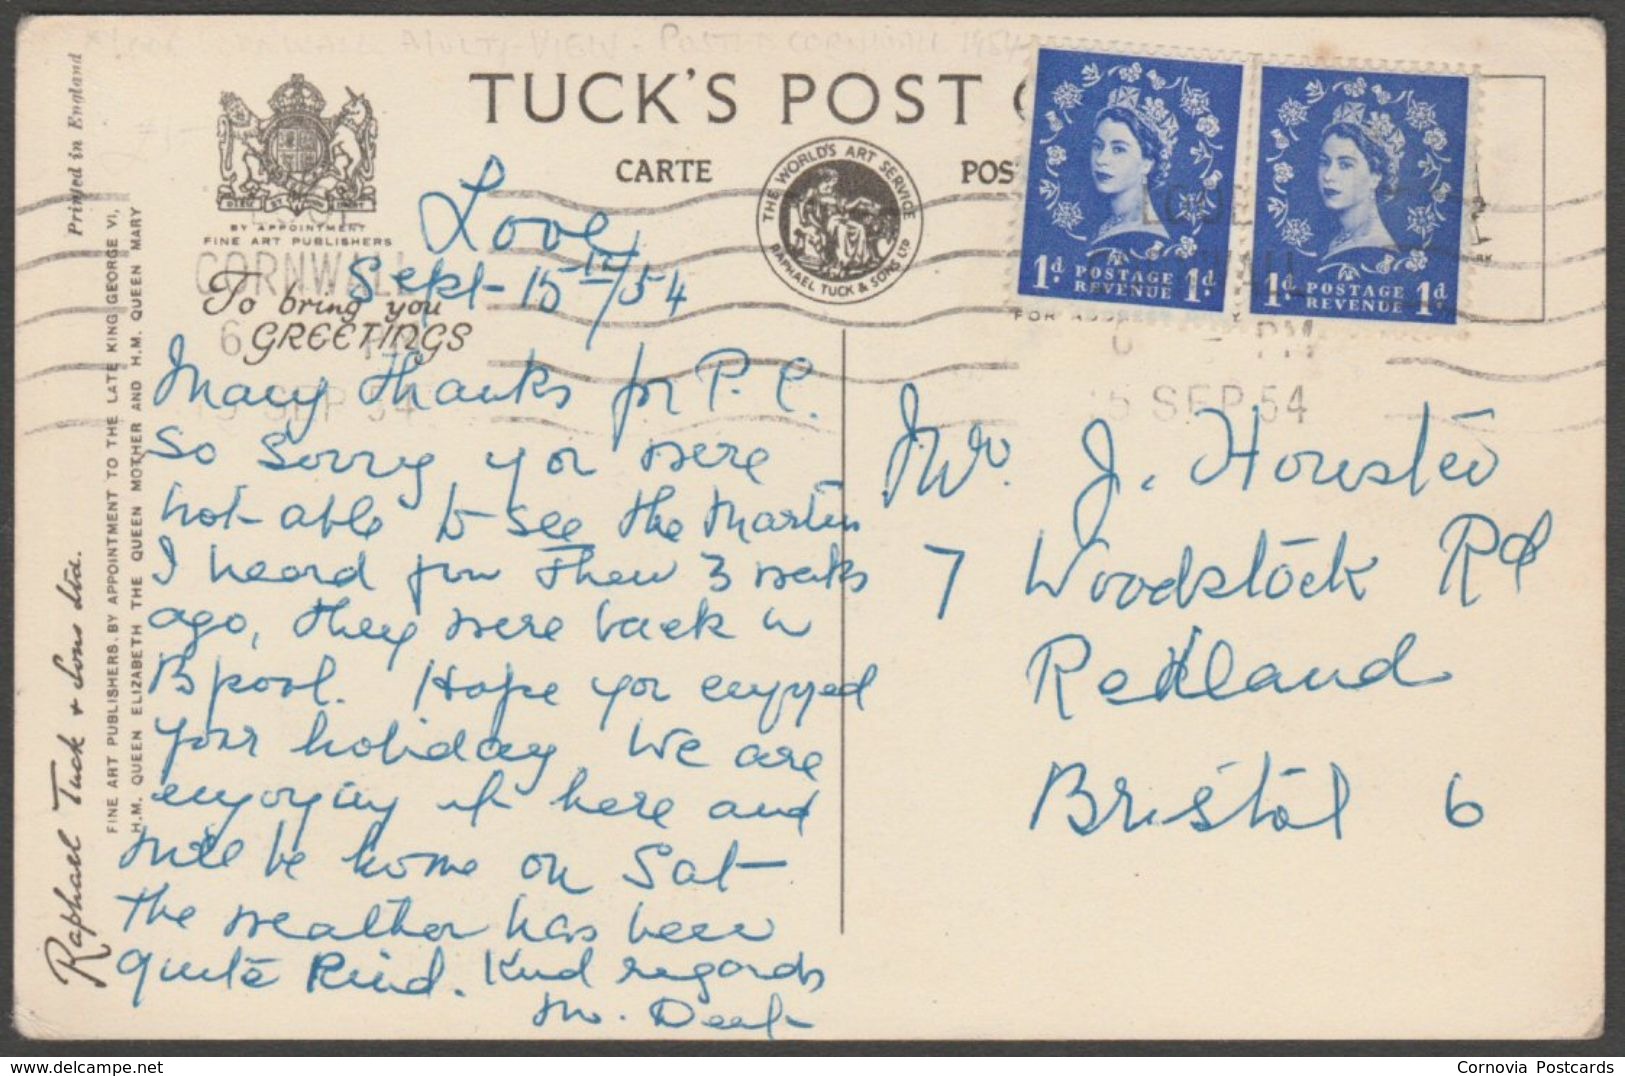 TUCK'S POST C
CARTE POS
THE WORLD'S ART SERVICE
RAPHAEL TUCK & SONS LTD
BY APPOINTMENT
FINE ART PUBLISHERS
Printed in England
To bring you
GREETINGS
Raphael Tuck & Sons Ltd.
FINE ART PUBLISHERS. BY APPOINTMENT TO THE LATE KING GEORGE VI,
H.M. QUEEN ELIZABETH THE QUEEN MOTHER AND H.M. QUEEN MARY
LOOE
CORNWALL
6 PM
15 SEP 54
1d POSTAGE REVENUE 1d
1d POSTAGE REVENUE 1d
5 SEP 54
Looe
Sept 15th/54
Many Thanks for P.C.
So sorry you were
not able to see the Martin
I heard from Them 3 weeks
ago, they were back in
B pool. Hope you enjoyed
your holiday We are
enjoying it here and
will be home on Sat
The weather has been
quite Kind. Kind regards
Mr. J. Houston
7 Woodstock Rd
Redland
Bristol 6
Cornovia Postcards